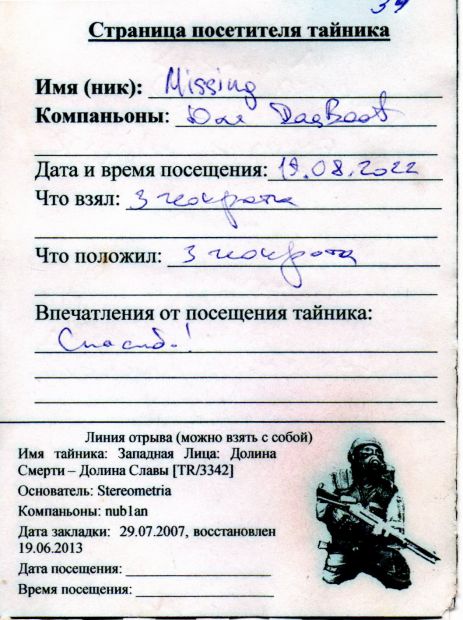 34
Страница посетителя тайника
Имя (ник): Missing
Компаньоны: Юля DagBoot
Дата и время посещения: 19.08.2022
Что взял: 3 геокрота
Что положил: 3 геокрота
Впечатления от посещения тайника:
Спасибо!
Линия отрыва (можно взять с собой)
Имя тайника: Западная Лица: Долина
Смерти – Долина Славы [TR/3342]
Основатель: Stereometria
Компаньоны: nub1an
Дата закладки: 29.07.2007, восстановлен
19.06.2013
Дата посещения:
Время посещения: